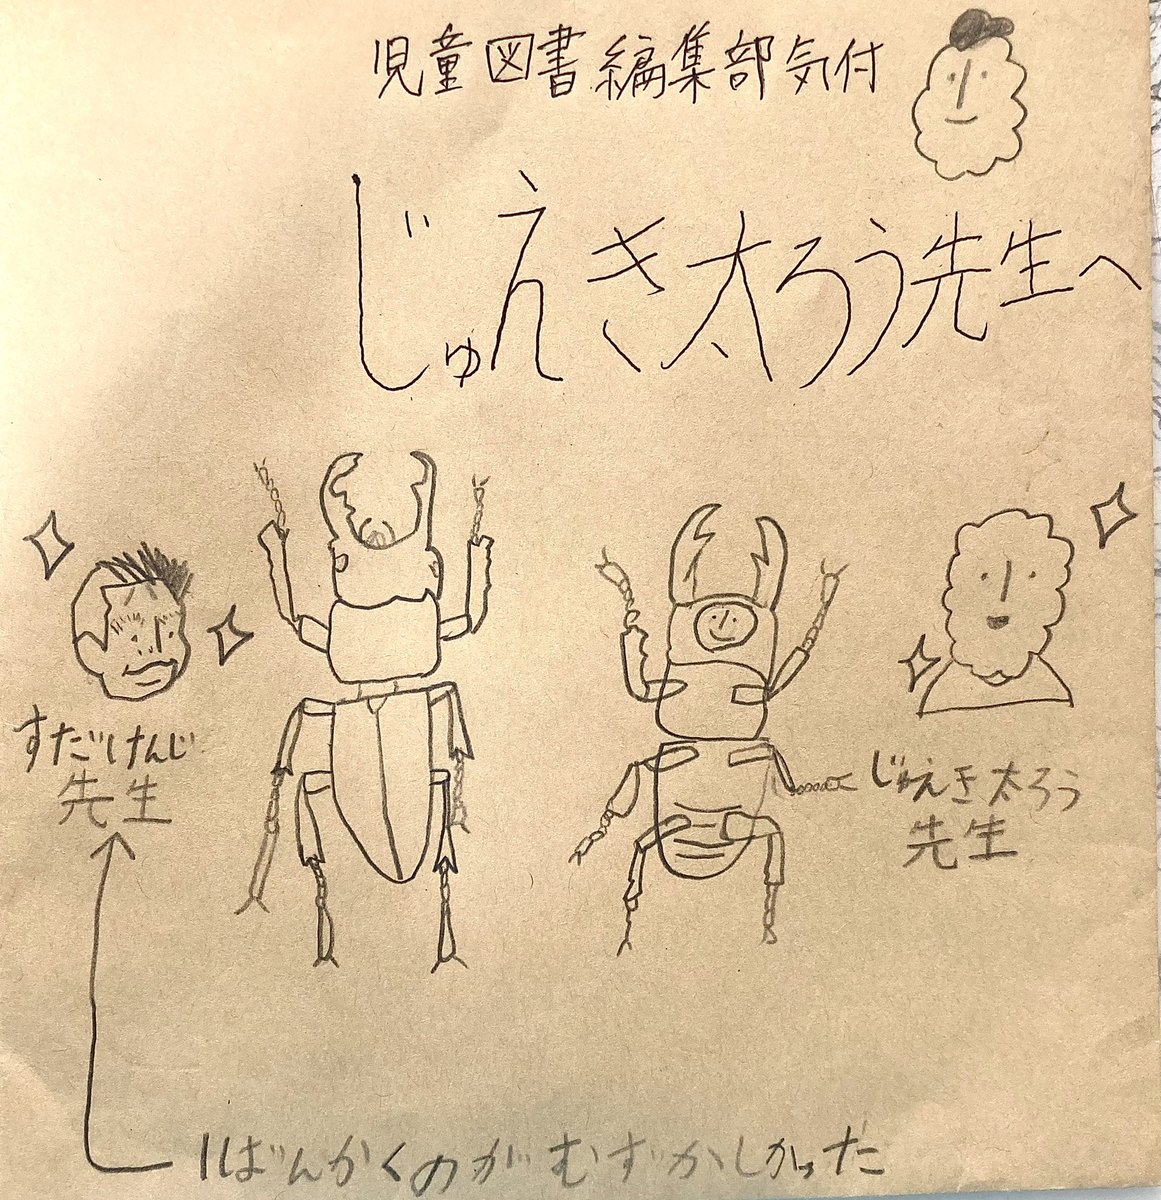 児童図書編集部気付
じゅえき太ろう先生へ
すだけんじ
先生
じゅえき太ろう
先生
1ばんかくのがむずかしかった